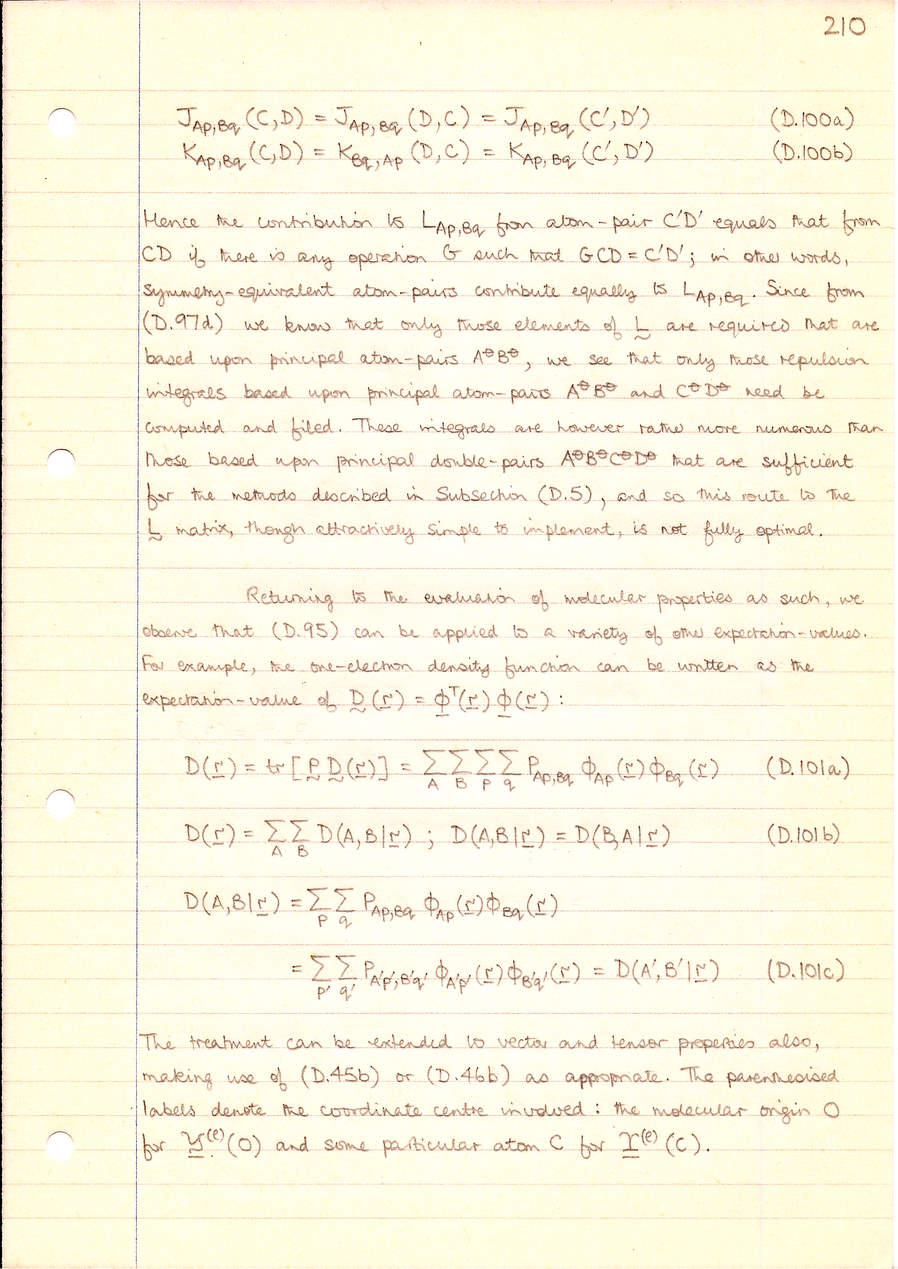 210
J_{Ap,Bq}(C,D) = J_{Ap,Bq}(D,C) = J_{Ap,Bq}(C',D') (D.100a)
K_{Ap,Bq}(C,D) = K_{Bq,Ap}(D,C) = K_{Ap,Bq}(C',D') (D.100b)
Hence the contribution to L_{Ap,Bq} from atom-pair C'D' equals that from
CD if there is any operation G such that GCD = C'D'; in other words,
symmetry-equivalent atom-pairs contribute equally to L_{Ap,Bq}. Since from
(D.97d) we know that only those elements of L̰ are required that are
based upon principal atom-pairs A^⊖B^⊖, we see that only those repulsion
integrals based upon principal atom-pairs A^⊖B^⊖ and C^⊖D^⊖ need be
computed and filed. These integrals are however rather more numerous than
those based upon principal double-pairs A^⊖B^⊖C^⊖D^⊖ that are sufficient
for the methods described in Subsection (D.5), and so this route to the
L̰ matrix, though attractively simple to implement, is not fully optimal.
Returning to the evaluation of molecular properties as such, we
observe that (D.95) can be applied to a variety of other expectation-values.
For example, the one-electron density function can be written as the
expectation-value of D̰(r̲) = ϕ̲^T(r̲)ϕ̲(r̲) :
D(r̲) = tr[P̰ D̰(r̲)] = Σ_A Σ_B Σ_p Σ_q P_{Ap,Bq} ϕ_{Ap}(r̲)ϕ_{Bq}(r̲) (D.101a)
D(r̲) = Σ_A Σ_B D(A,B|r̲) ; D(A,B|r̲) = D(B,A|r̲) (D.101b)
D(A,B|r̲) = Σ_p Σ_q P_{Ap,Bq} ϕ_{Ap}(r̲)ϕ_{Bq}(r̲)
= Σ_{p'} Σ_{q'} P_{A'p',B'q'} ϕ_{A'p'}(r̲)ϕ_{B'q'}(r̲) = D(A',B'|r̲) (D.101c)
The treatment can be extended to vector and tensor properties also,
making use of (D.45b) or (D.46b) as appropriate. The parenthesised
labels denote the coordinate centre involved : the molecular origin O
for Y̲^{(e)}(O) and some particular atom C for I̲^{(e)}(C).